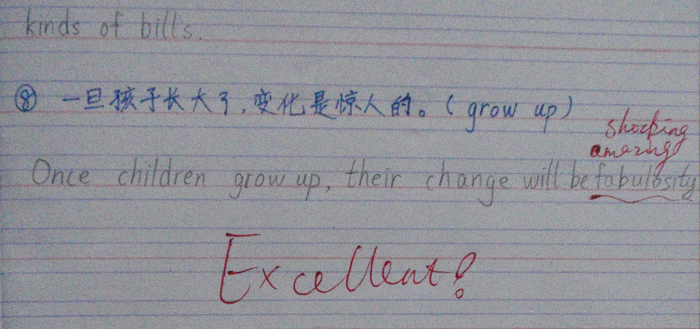 kinds of bills.
⑧ 一旦孩子长大了,变化是惊人的。(grow up)
shocking
amazing
Once children grow up, their change will be fabulosity
Excellent!